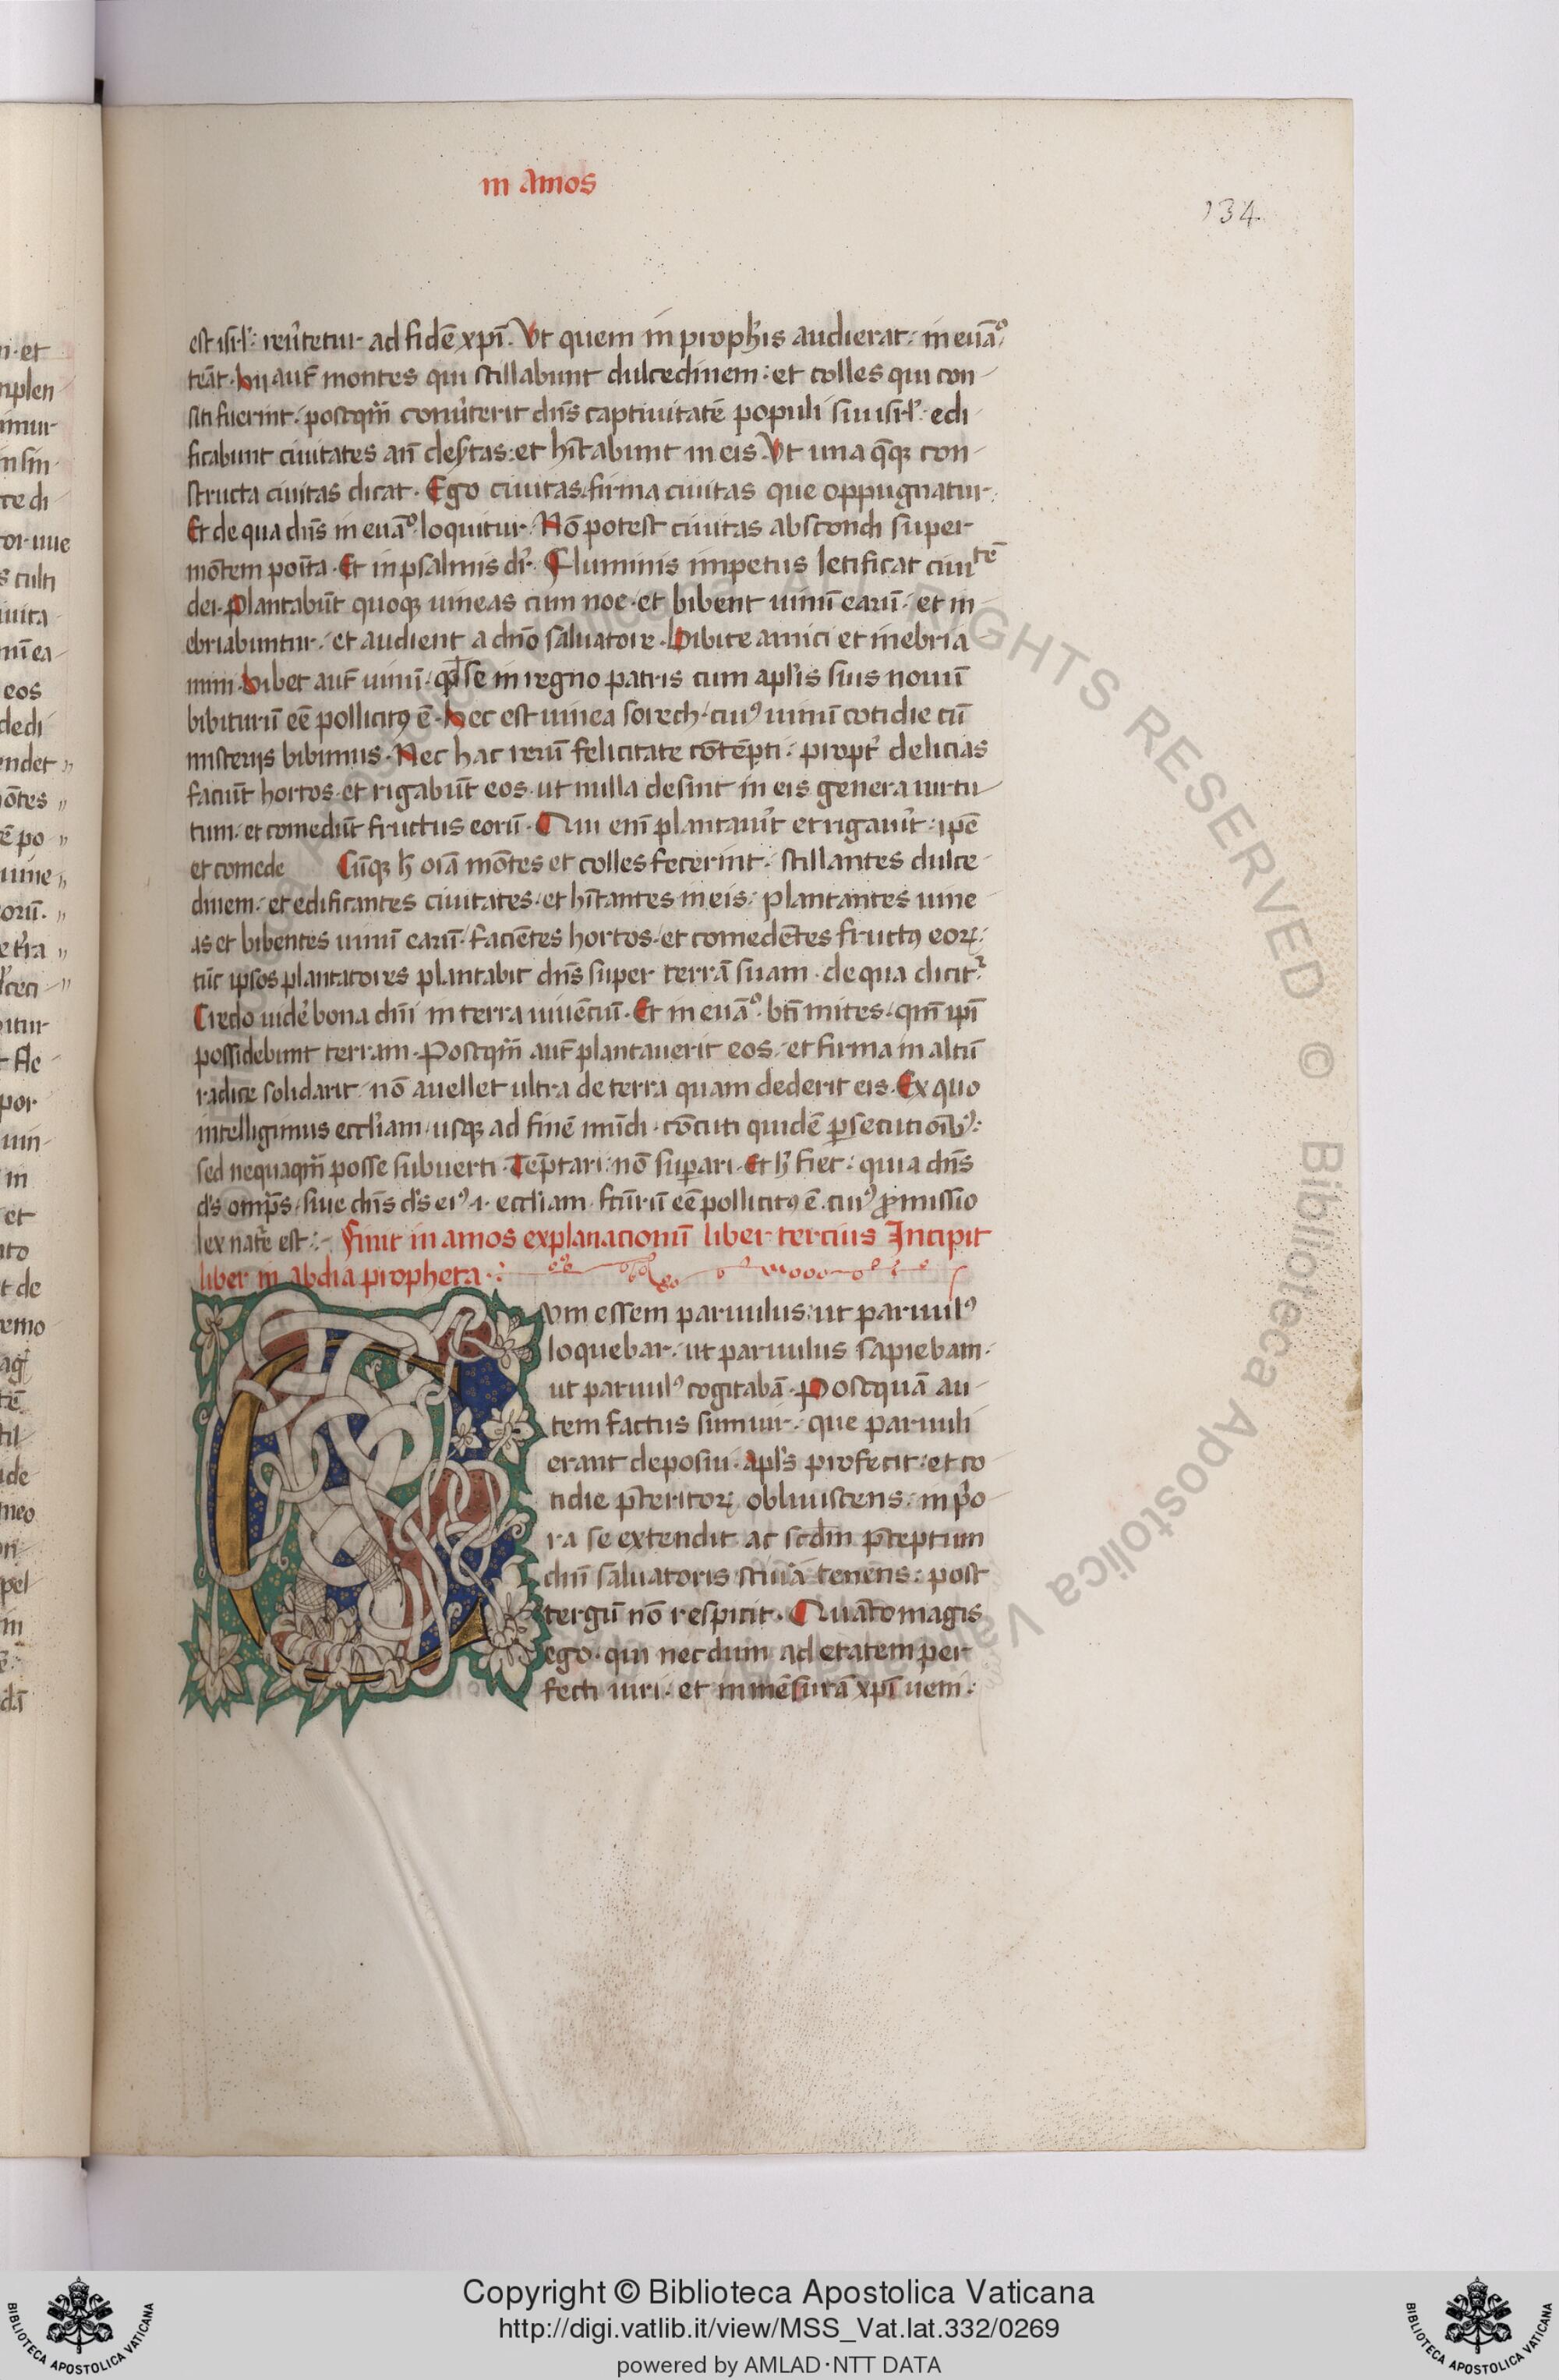 in Amos
134
est isrl': reũtetur ad fidē xp̄i. Vt quem in proph'is audierat: in euā°
teāt. hii aut̄ montes qui stillabunt dulcedinem: et colles qui con
siti fuerint: postqm̄ conũterit dn̄s captiuitatē populi sui isrl'. edi
ficabunt ciuitates añ des'tas: et hītabunt in eis. Vt una q̄q; con
structa ciuitas dicat. Ego ciuitas firma ciuitas que oppugnatur.
Et de qua dn̄s in euā° loquitur. Nō potest ciuitas abscondi super
mōtem poīta. Et in psalmis dr̄. Fluminis impetus letificat ciuitē
dei. Plantabūt quoq; uineas cum noe. et bibent uinū earū. et in
ebriabuntur. et audient a dn̄o saluatore. Bibite amici et inebria
mini. bibet aut̄ uinū. qd̄ se in regno patris cum apl'is suis nouū
bibiturū eē pollicitꝰ ē. hec est uinea sorech. cuiꝰ uinū cotidie cū
misteriis bibimus. Nec hac rerū felicitate cōtēpti: propt' delicias
faciūt hortos. et rigabūt eos. ut nulla desint in eis genera uirtu
tum. et comedūt fructus eorū. Qui enī plantauīt et rigauīt: ip̄e
et comede Cūq; h̄ oīa mōtes et colles fecerint: stillantes dulce
dinem: et edificantes ciuitates. et hītantes in eis: plantantes uine
as et bibentes uinū earū. faciētes hortos. et comedētes fructꝰ eorꝝ:
tūc ipsos plantatores plantabit dn̄s super terrā suam. de qua dicit'
Credo uidē' bona dn̄i in terra uiuētiū. Et in euā°. bt̄i mites. qm̄ ip̄i
possidebunt terram. Postqm̄ aut̄ plantauerit eos. et firma in altū
radice solidarit. nō auellet ultra de terra quam dederit eis. Ex quo
intelligimus eccl'iam. usq; ad finē mūdi. cōcuti quidē ꝑsecutiōibꝰ:
sed nequaqm̄ posse subuerti. Tēptari: nō suꝑari. Et h̄ fiet: quia dn̄s
d's om̄ps. siue dn̄s d's eiꝰ .i. eccl'iam. fc̄urū eē pollicitꝰ ē. cuiꝰ ꝓmissio
lex nat'e est: Finit in amos explanacionū liber tercius Incipit
liber in abdia propheta
Cvm essem paruulus: ut paruulꝰ
loquebar. ut paruulus sapiebam.
ut paruulꝰ cogitabā. Postquā au
tem factus sum uir: que paruuli
erant deposui. apl's profecit: et co
tidie p̄teritorꝝ obliuiscens: in p'o
ra se extendit. ac scd̄m p̄ceptum
dn̄i saluatoris stiuā tenens: post
tergū nō respicit. Quāto magis
ego. qui necdum ad etatem per
fecti uiri. et in mēsurā xp̄i ueni:
Copyright © Biblioteca Apostolica Vaticana
http://digi.vatlib.it/view/MSS_Vat.lat.332/0269
powered by AMLAD·NTT DATA
BIBLIOTECA APOSTOLICA VATICANA
BIBLIOTECA APOSTOLICA VATICANA